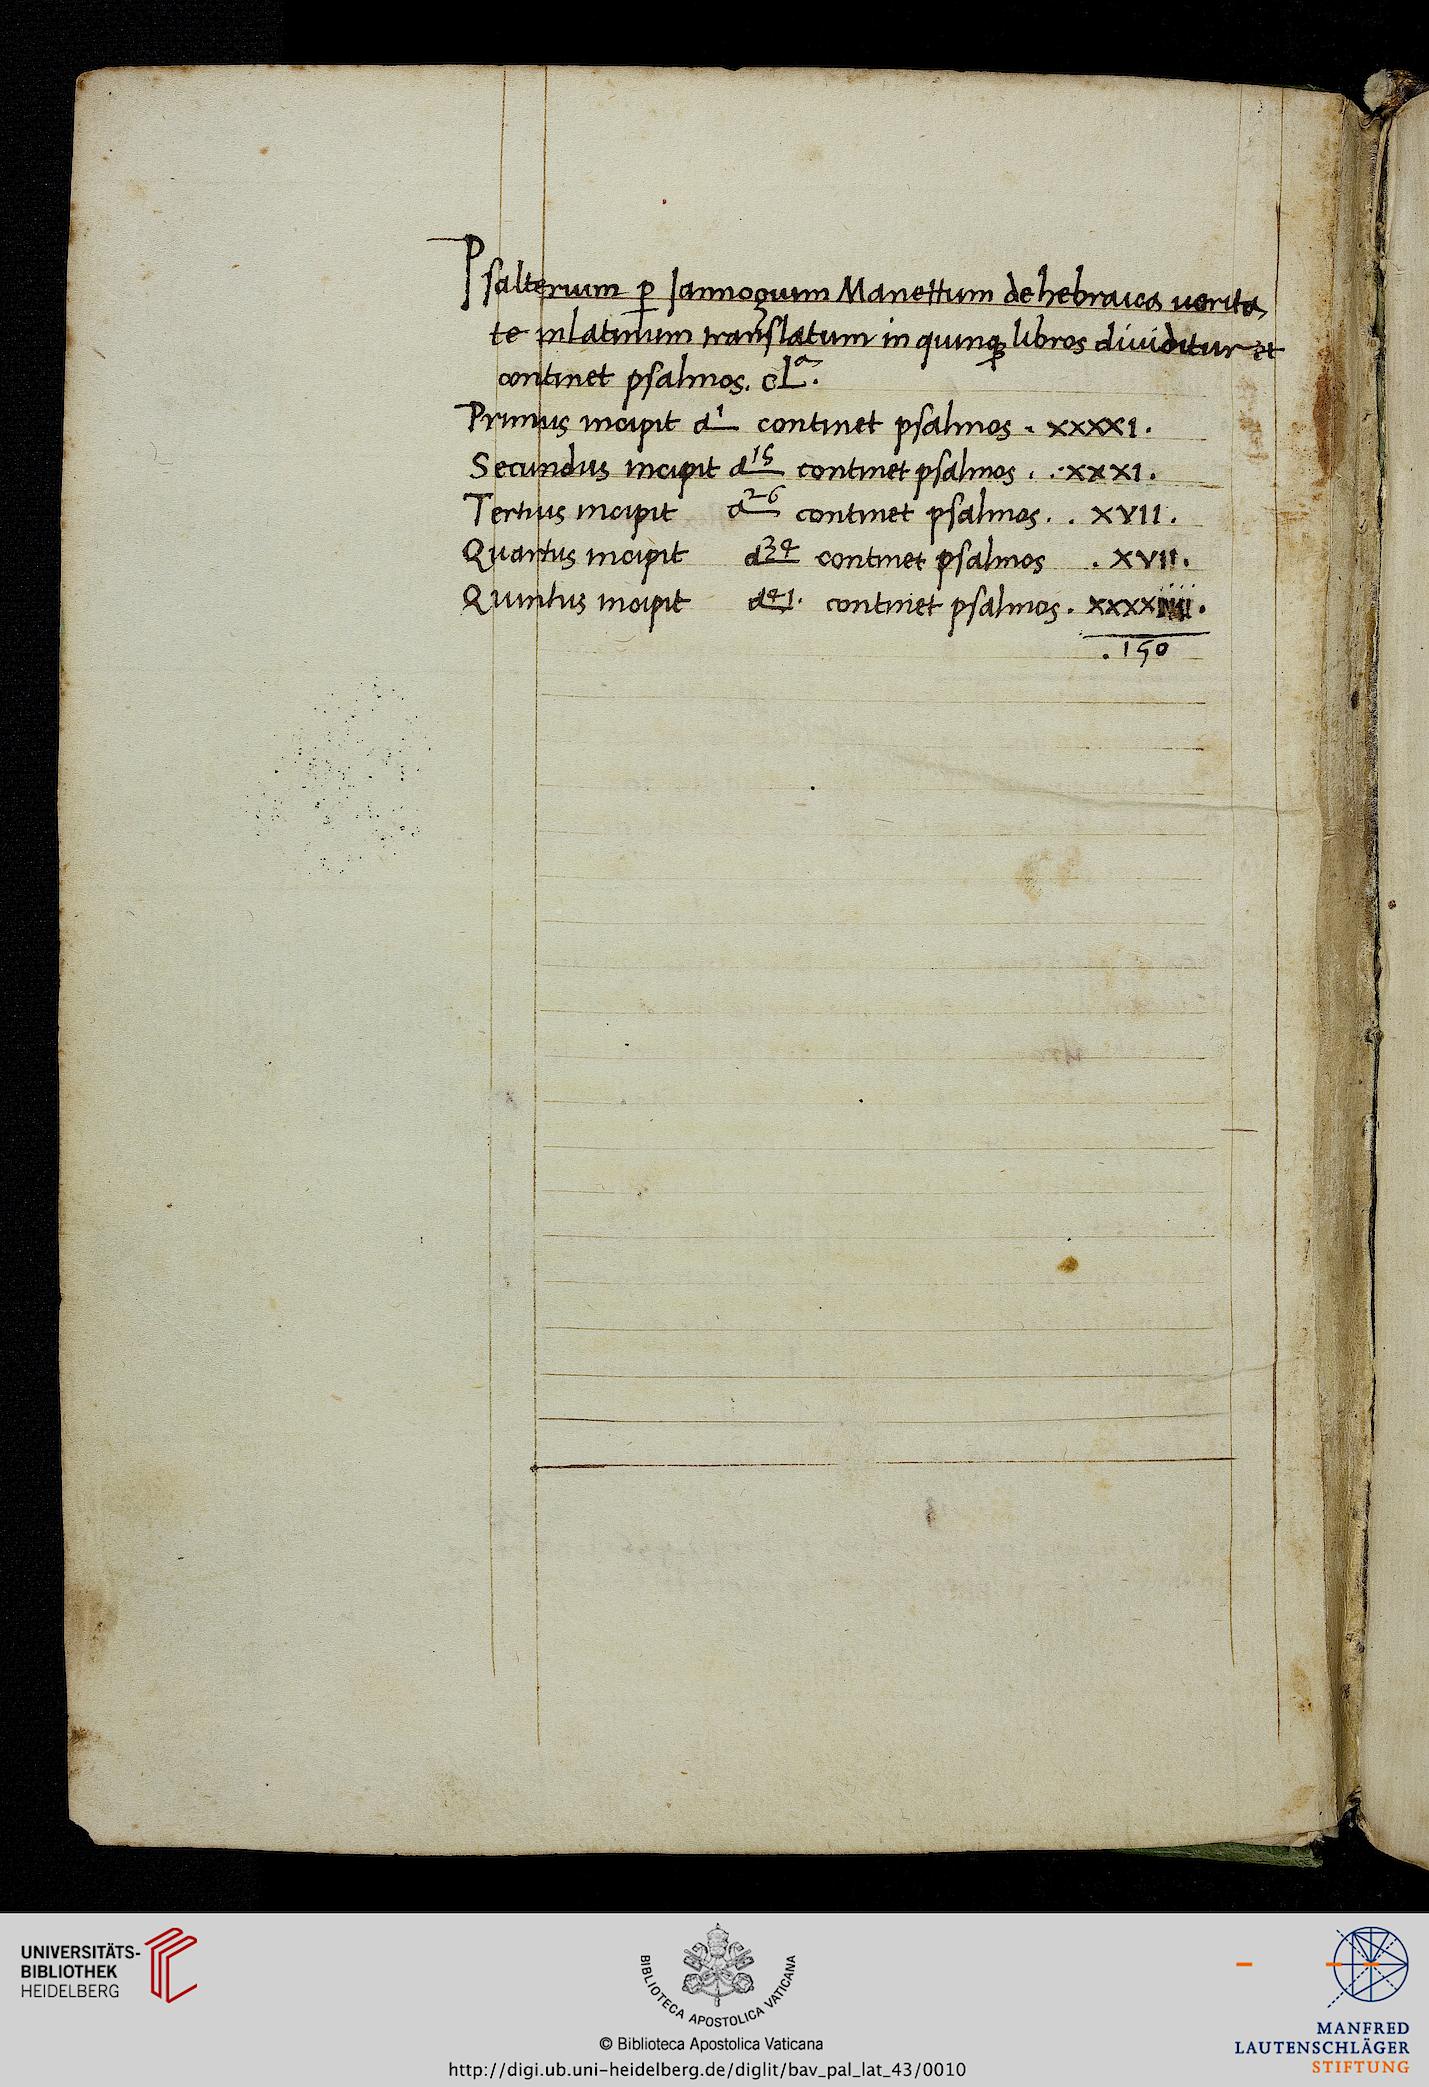 Psalterium p Iannoçum Manettum de hebraica uerita
te in latinum translatum in quinq libros diuiditur et
continet psalmos. cLᵃ.
Primus incipit a 1 continet psalmos . xxxxi .
Secundus incipit a 15 continet psalmos . . xxxi .
Tertius incipit a 26 continet psalmos . . xvii .
Quartus incipit a 34 continet psalmos . xvii .
Quintus incipit a 41 . continet psalmos . xxxxiiii .
. 150
UNIVERSITÄTS-
BIBLIOTHEK
HEIDELBERG
BIBLIOTECA APOSTOLICA VATICANA
© Biblioteca Apostolica Vaticana
http://digi.ub.uni-heidelberg.de/diglit/bav_pal_lat_43/0010
MANFRED
LAUTENSCHLÄGER
STIFTUNG